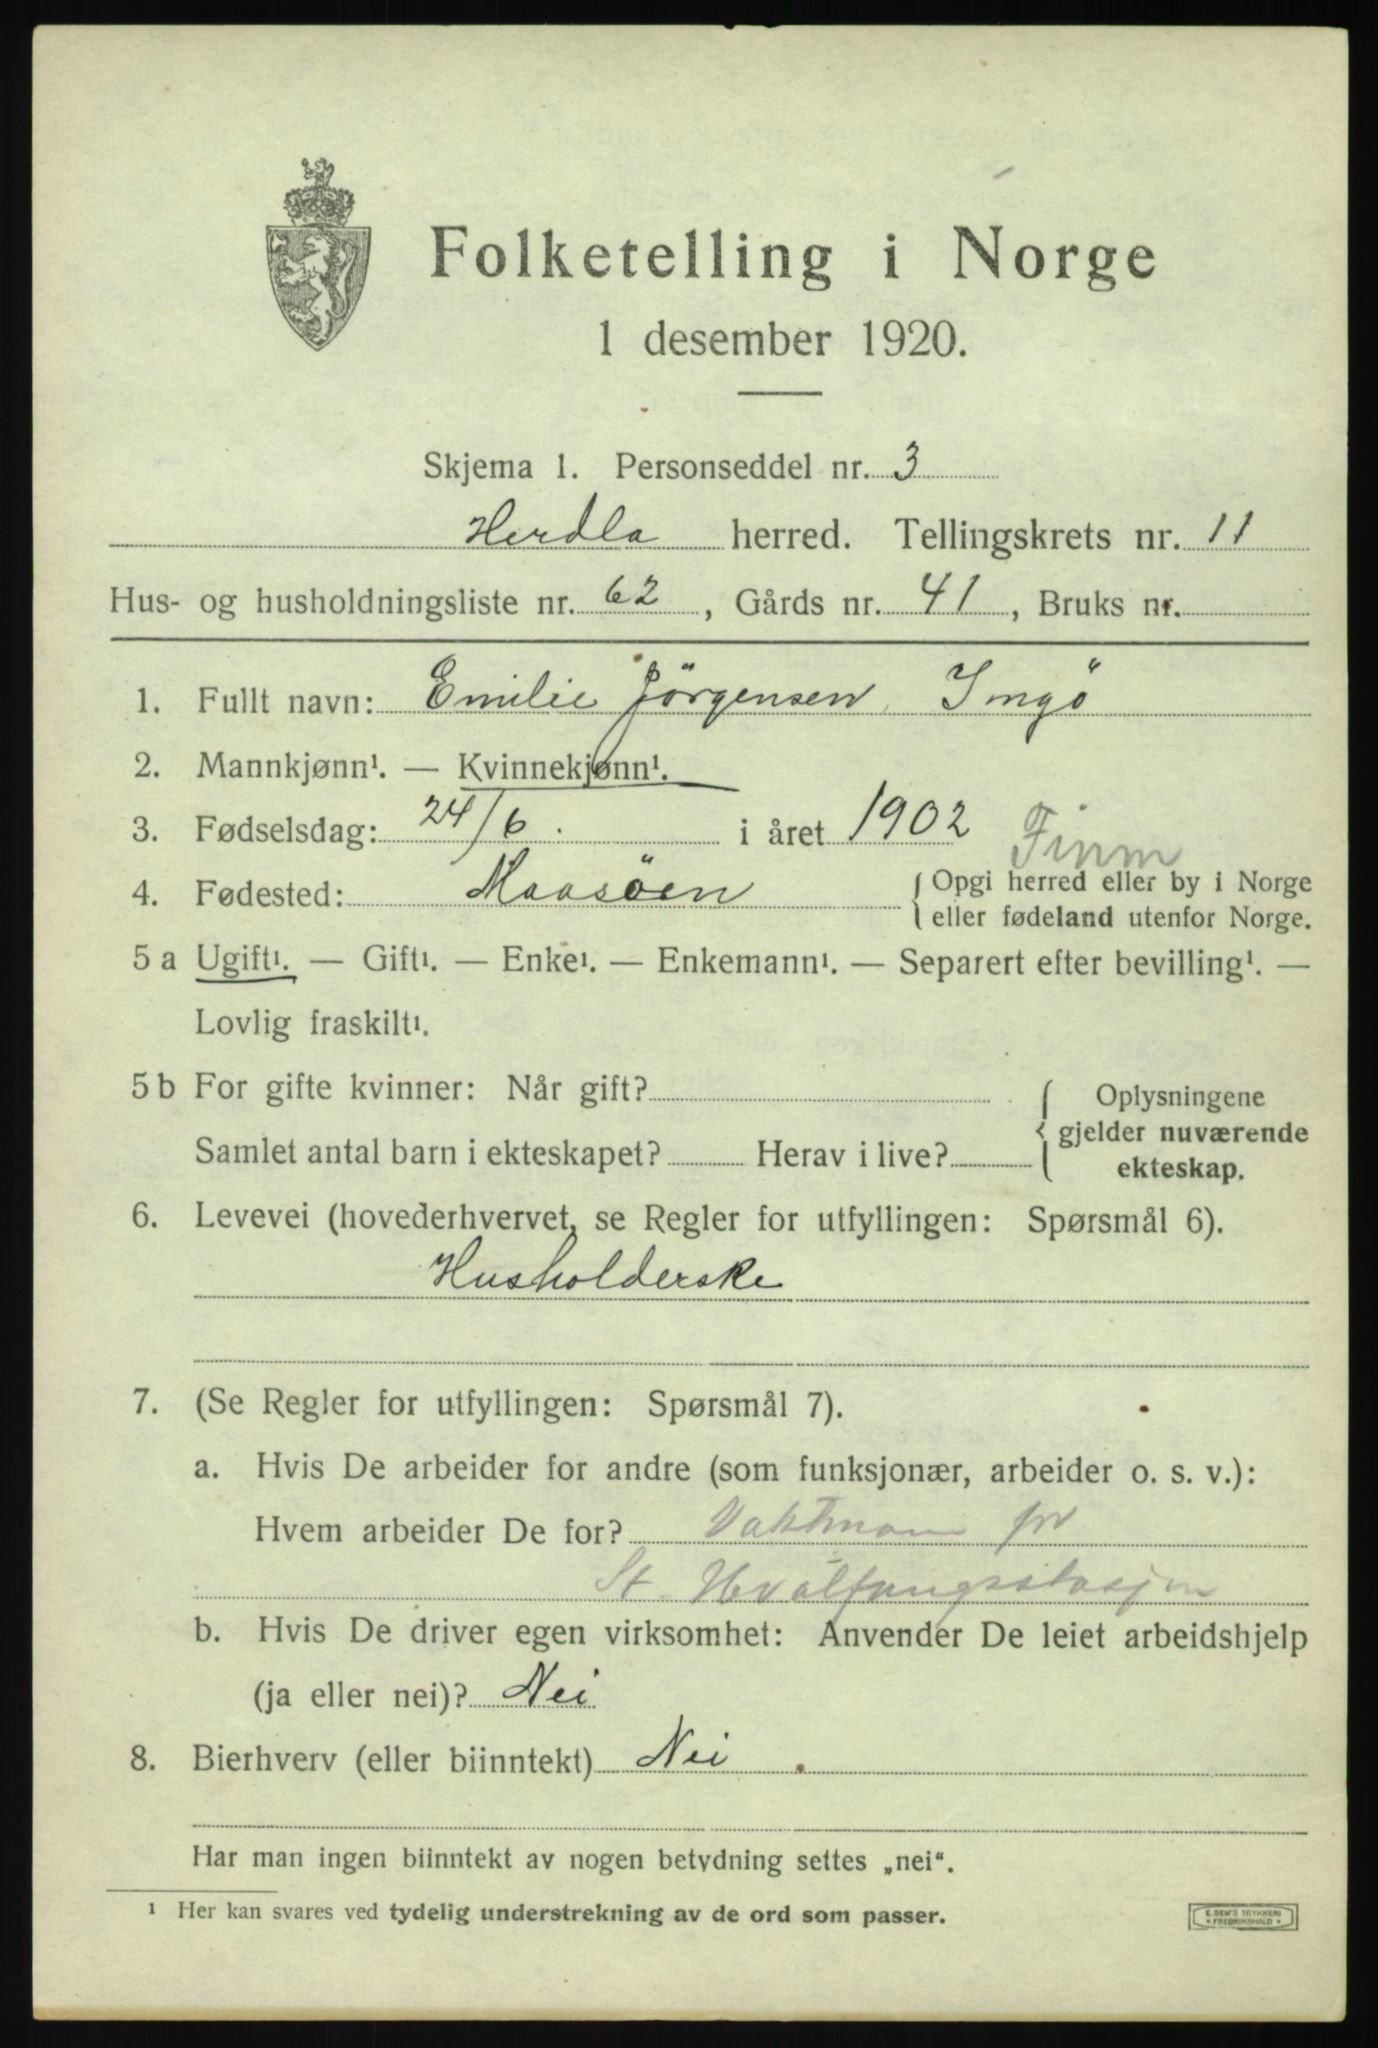 Folketelling i Norge
1 desember 1920.
Skjema 1. Personseddel nr. 3
Herdla herred. Tellingskrets nr. 11
Hus- og husholdningsliste nr. 62, Gårds nr. 41, Bruks nr.
1. Fullt navn: Emilie Jörgensen, Ingö
2. Mannkjønn¹. — Kvinnekjønn¹.
3. Fødselsdag: 24/6. i året 1902 Finm
4. Fødested: Maasöen { Opgi herred eller by i Norge
eller fødeland utenfor Norge.
5 a Ugift¹. — Gift¹. — Enke¹. — Enkemann¹. — Separert efter bevilling¹. —
Lovlig fraskilt¹.
5 b For gifte kvinner: Når gift? { Oplysningene
gjelder nuværende
Samlet antal barn i ekteskapet? Herav i live?
ekteskap.
6. Levevei (hovederhvervet, se Regler for utfyllingen: Spørsmål 6).
Husholderske
7. (Se Regler for utfyllingen: Spørsmål 7).
a. Hvis De arbeider for andre (som funksjonær, arbeider o. s. v.):
Hvem arbeider De for? Vaktmann
St. Hvalfangsstasjon
b. Hvis De driver egen virksomhet: Anvender De leiet arbeidshjelp
(ja eller nei)? Nei
8. Bierhverv (eller biinntekt) Nei
Har man ingen biinntekt av nogen betydning settes „nei“.
¹ Her kan svares ved tydelig understrekning av de ord som passer.
E. SEM'S TRYKKERI
FREDRIKSHALD